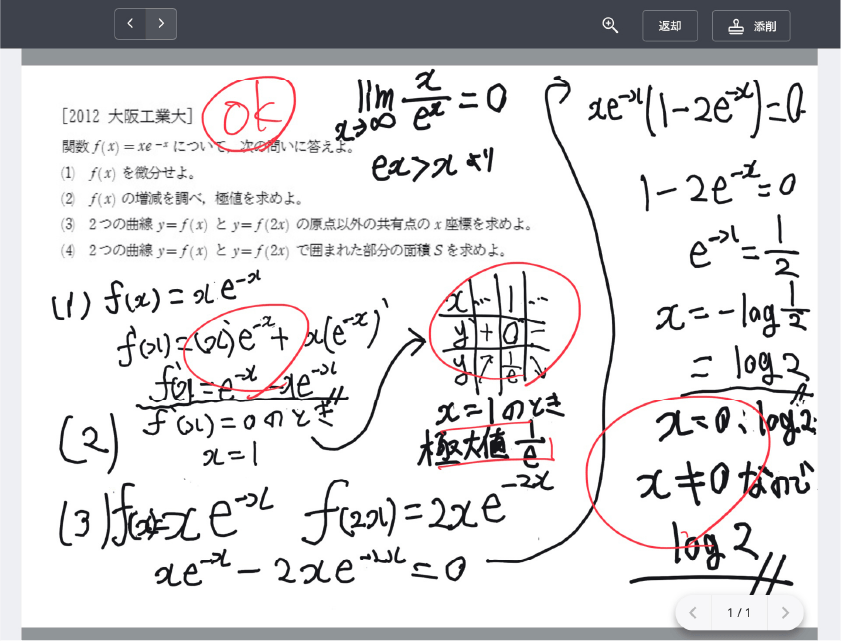 返却
添削
[2012 大阪工業大]
ok
関数 f(x) = xe^{-x} について, 次の問いに答えよ。
(1) f(x) を微分せよ。
(2) f(x) の増減を調べ, 極値を求めよ。
(3) 2つの曲線 y=f(x) と y=f(2x) の原点以外の共有点の x 座標を求めよ。
(4) 2つの曲線 y=f(x) と y=f(2x) で囲まれた部分の面積 S を求めよ。
lim x→∞ x/e^x = 0
ex>x より
(1) f(x) = xe^{-x}
f'(x) = (x)'e^{-x} + x(e^{-x})'
f'(x) = e^{-x} - xe^{-x}
(2) f'(x) = 0 のとき
x = 1
x … 1 …
y' + 0 -
y ↗ 1/e ↘
x = 1 のとき
極大値 1/e
(3) f(x) = xe^{-x} f(2x) = 2xe^{-2x}
xe^{-x} - 2xe^{-2x} = 0
xe^{-x}(1-2e^{-x}) = 0
1-2e^{-x} = 0
e^{-x} = 1/2
x = -log 1/2
= log 2
x = 0, log 2
x ≠ 0 なので
log 2
1 / 1